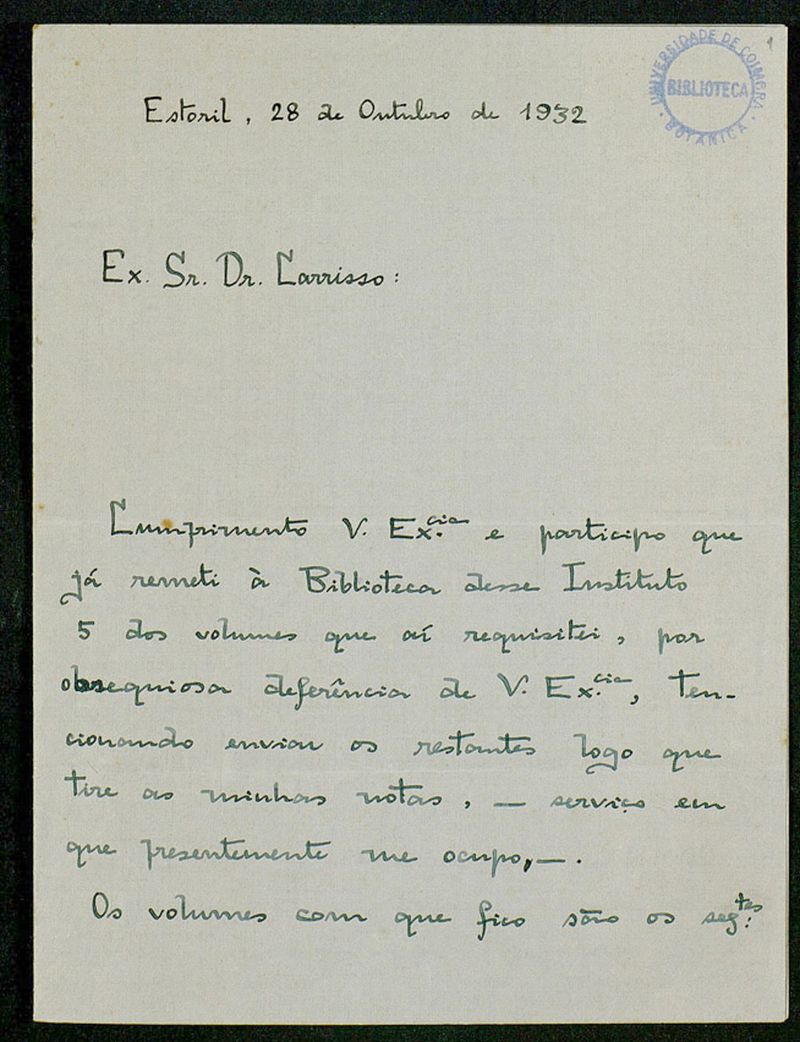 1
UNIVERSIDADE DE COIMBRA
BIBLIOTECA
BOTANICA
Estoril, 28 de Outubro de 1932
Ex. Sr. Dr. Carrisso:
Cumprimento V. Ex.cia e participo que
já remeti à Biblioteca desse Instituto
5 dos volumes que aí requisitei, por
obsequiosa deferência de V. Ex.cia, ten-
cionando enviar os restantes logo que
tire as minhas notas, — serviço em
que presentemente me ocupo, —.
Os volumes com que fico são os seg.tes: